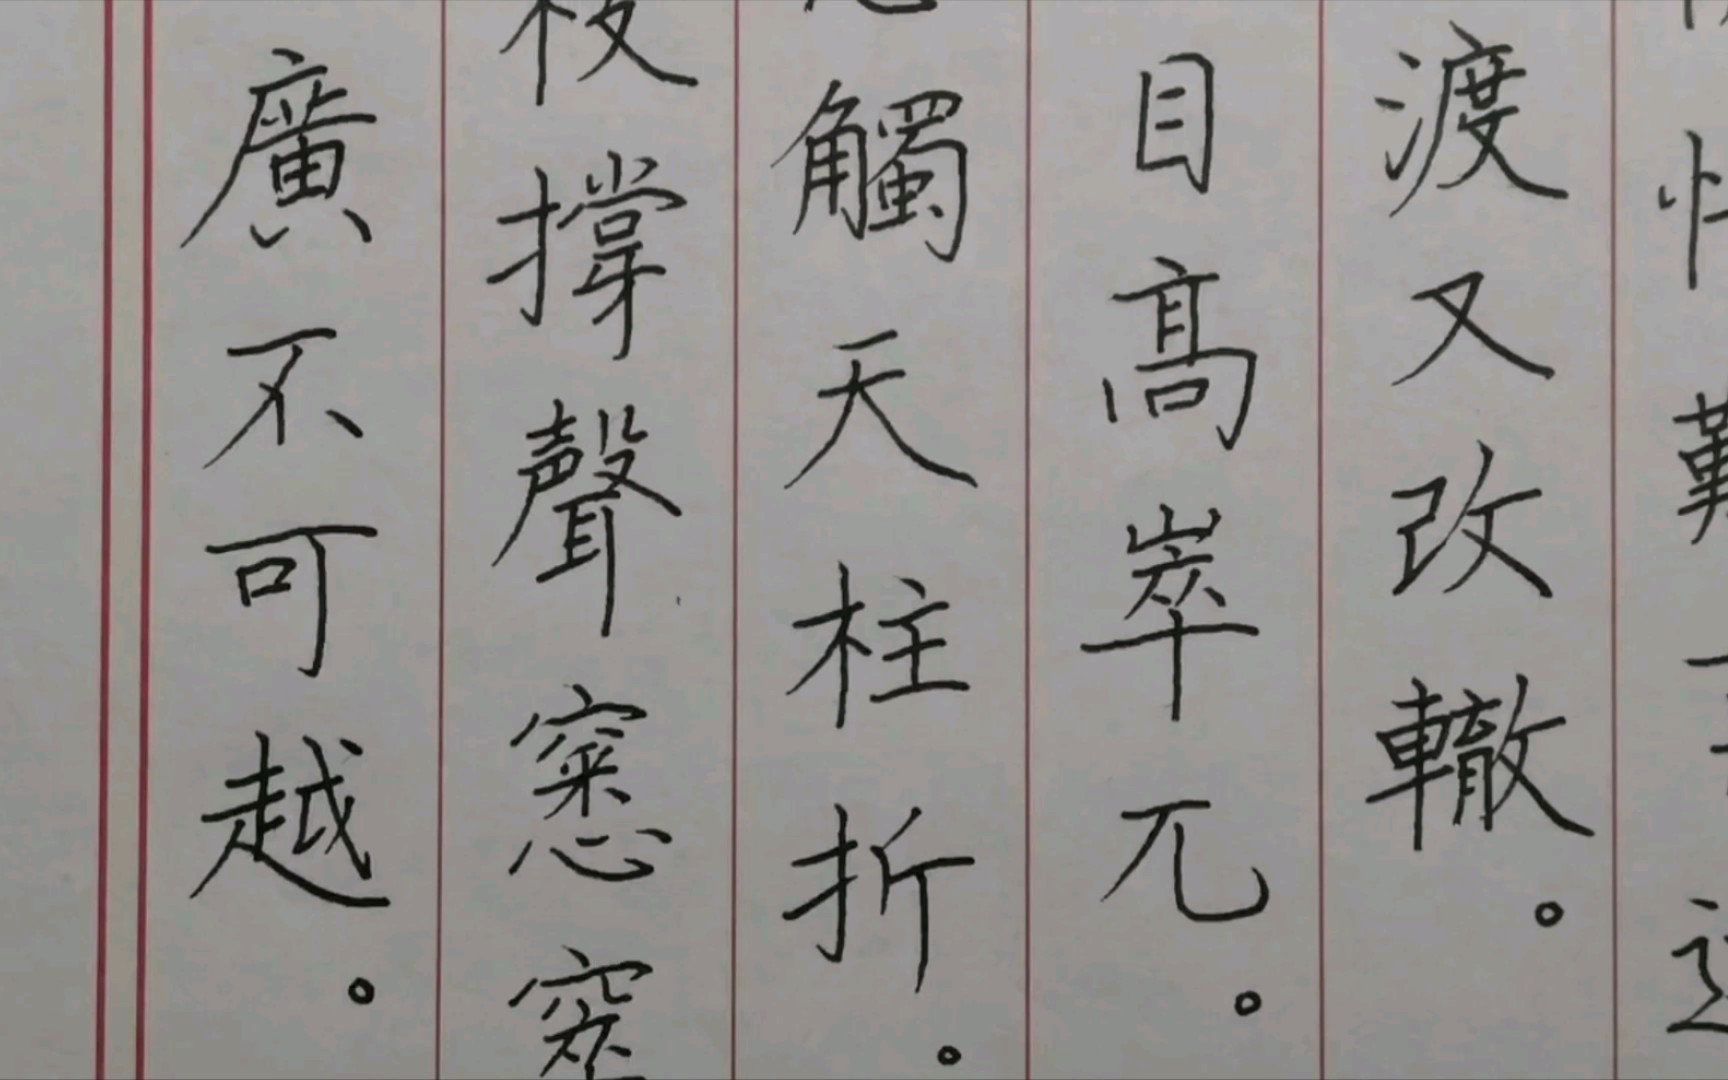 渡又改轍。
目高崒兀。
觸天柱折。
枝撐聲窸窣
廣不可越。